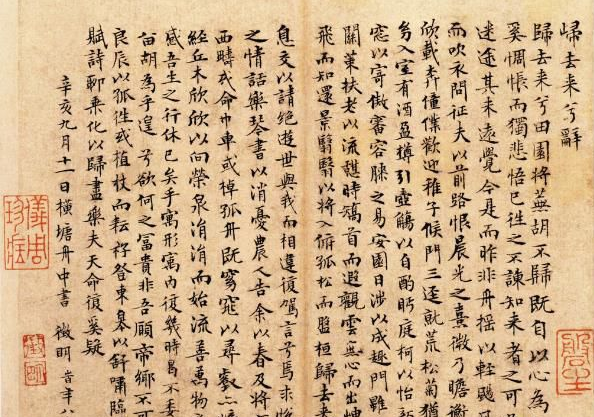 歸去来兮辭
歸去来兮田園將蕪胡不歸既自以心為
奚惆悵而獨悲悟已往之不諫知来者之可
迷途其未遠覺今是而昨非舟摇以輕颺
而吹衣問征夫以前路恨晨光之熹微乃瞻衡
欣載奔僮僕歡迎稚子候門三逕就荒松菊猶
㓜入室有酒盈樽引壺觴以自酌眄庭柯以怡
窓以寄傲審容膝之易安園日涉以成趣門雖
關策扶老以流憩時矯首而遐觀雲無心而出岫
飛而知還景翳翳以將入撫孤松而盤桓歸去来
息交以請絶遊世與我而相違復駕言兮焉求
之情話樂琴書以消憂農人告余以春及將
西疇或命巾車或棹孤舟既窈窕以尋壑亦
經丘木欣欣以向榮泉涓涓而始流善萬物
感吾生之行休已矣乎寓形寓内復幾時曷不委
留胡為乎遑遑兮欲何之冨貴非吾願帝鄉不可
良辰以孤往或植杖而耘耔登東皋以舒嘯臨
賦詩聊乗化以歸盡樂夫天命復奚疑
辛亥九月十一日横塘舟中書 徵明 時年八
儀周珍藏
徵明